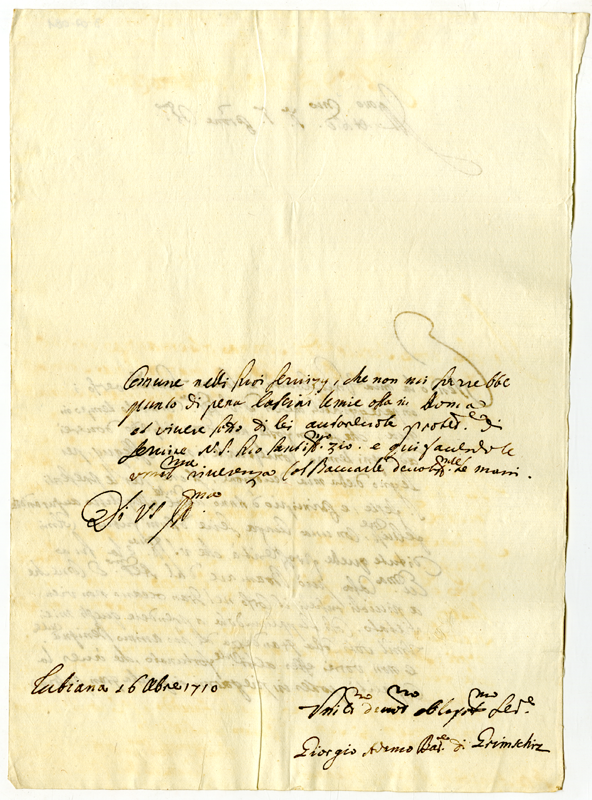 Comune nelli suoi servizy, che non mi sarrebbe
punto di pena lasciar le mie ossa in Roma
et vivere sotto di lei autorevole protet.ne di
servire N.S. suo santiss.mo zio. e qui facendole
umil.ma riverenza col Bacciarle devotiss.te le mani.
Di VS Ill.ma
Lubiana 26 Obre 1710
Umil.mo devot.mo obligat.mo Ser.e
Giorgio Adamo Bar.e di Grimschiz